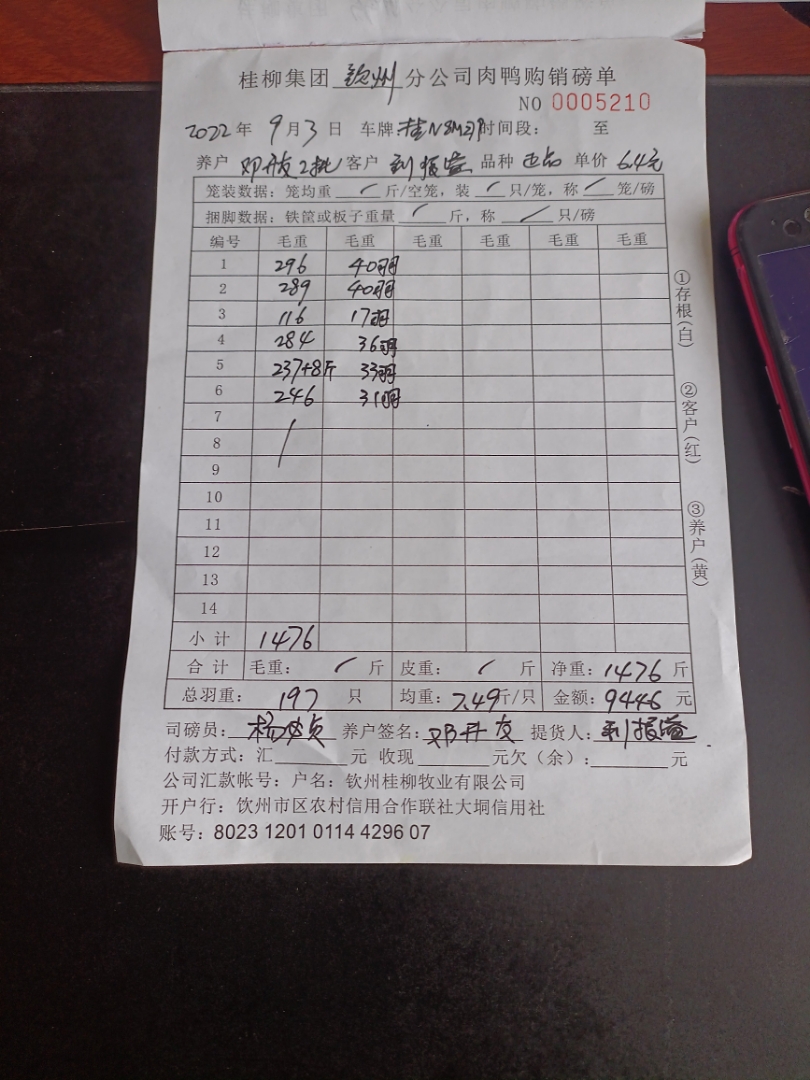 桂柳集团 钦州 分公司肉鸭购销磅单
NO 0005210
2022 年 9 月 3 日 车牌 桂N8M 时间段： 至
养户 邓开友2批 客户 利振 品种 单价 6.4元
笼装数据：笼均重 / 斤/空笼，装 / 只/笼，称 / 笼/磅
捆脚数据：铁筐或板子重量 / 斤，称 / 只/磅
编号 毛重 毛重 毛重 毛重 毛重 毛重
1 296 40羽
2 289 40羽
3 116 17羽
4 284 36羽
5 237+8斤 33羽
6 246 31羽
7
8 /
9
10
11
12
13
14
小计 1476
合计 毛重： / 斤 皮重： / 斤 净重：1476 斤
总羽重： 197 只 均重：7.49斤/只 金额：9446 元
司磅员： 杨 贞 养户签名：邓开友 提货人：利振
付款方式：汇 元 收现 元欠（余）： 元
公司汇款帐号：户名：钦州桂柳牧业有限公司
开户行：饮州市区农村信用合作联社大垌信用社
账号：8023 1201 0114 4296 07
①存根（白）
②客户（红）
③养户（黄）